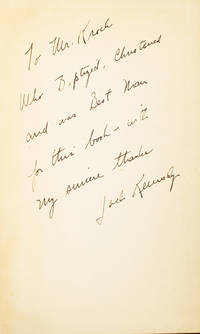 To Mr. Kroch
Who B_ptized, Christened
and was Best Man
for this book - with
my sincere thanks
Jack Kennedy